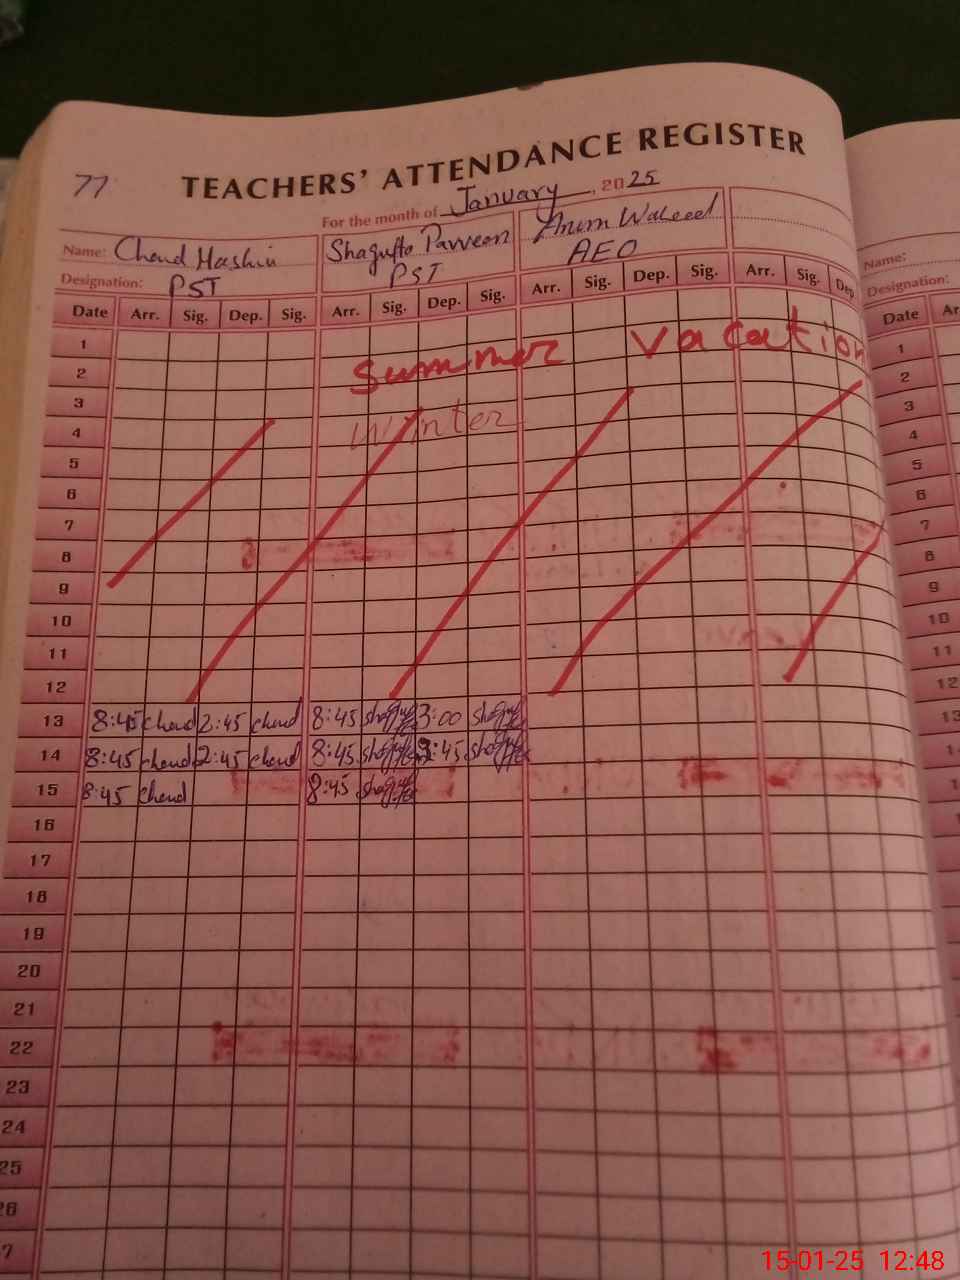 77
TEACHERS' ATTENDANCE REGISTER
For the month of January, 2025
Name: Chand Shagufta Parveen Anum Waheed
Designation: PST PST AEO
Date Arr. Sig. Dep. Sig. Arr. Sig. Dep. Sig. Arr. Sig. Dep. Sig. Arr. Sig. Dep
1 Summer vacation
2
3
4 Winter
5
6
7
8
9
10
11
12
13 8:45 chand 2:45 chand 8:45 shagufta 3:00 shagufta
14 8:45 chand 2:45 chand 8:45 shagufta :45 shagufta
15 8:45 chand 8:45 shagufta
16
17
18
19
20
21
22
23
24
25
26
7
Name:
Designation:
Date Ar
1
2
3
4
5
6
7
8
9
10
11
12
13
14
15
15-01-25 12:48